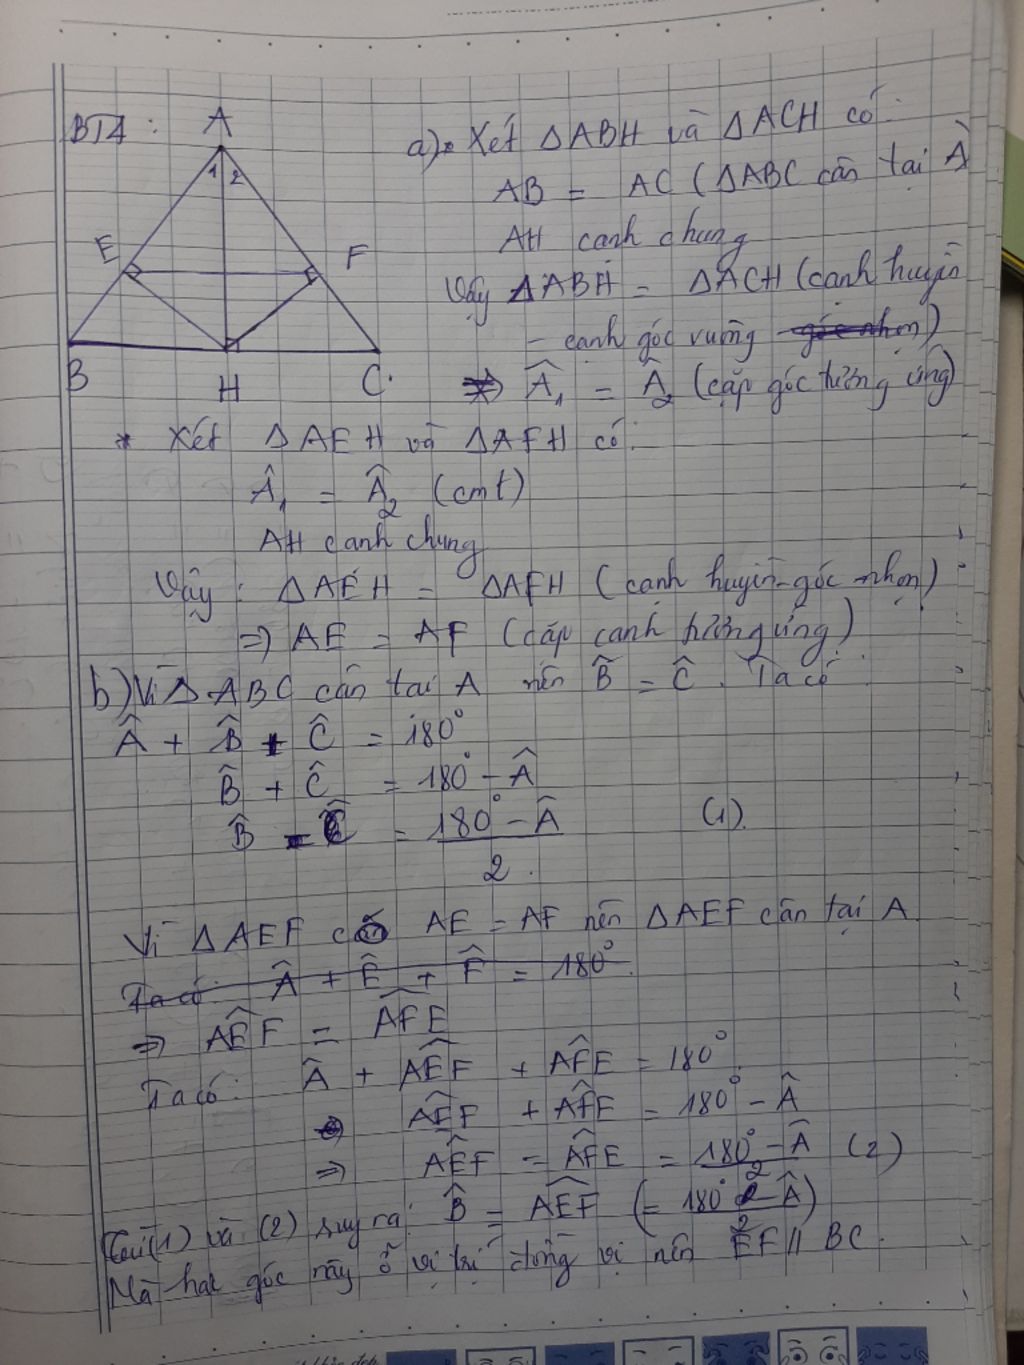 BT4 :
A
1 2
E
F
B
H
C
a) * Xét ΔABH và ΔACH có:
AB = AC (ΔABC cân tại A
AH cạnh chung
Vậy ΔABH = ΔACH (cạnh huyền
- cạnh góc vuông góc nhọn)
=> Â₁ = Â₂ (cặp góc tương ứng)
* Xét ΔAEH và ΔAFH có:
Â₁ = Â₂ (cmt)
AH cạnh chung
Vậy : ΔAEH = ΔAFH (cạnh huyền - góc nhọn)
=> AE = AF (cặp cạnh tương ứng)
b) Vì ΔABC cân tại A nên B̂ = Ĉ. Ta có
 + B̂ + Ĉ = 180°
B̂ + Ĉ = 180° - Â
B̂ = Ĉ = (180° - Â)/2 (1).
Vì ΔAEF có AE = AF nên ΔAEF cân tại A.
Ta có:  + Ê + F̂ = 180°.
=> AÊF = AF̂E
Ta có:  + AÊF + AF̂E = 180°.
=> AÊF + AF̂E = 180° - Â
=> AÊF = AF̂E = (180° - Â)/2 (2)
Từ (1) và (2) suy ra: B̂ = AÊF (= (180° - Â)/2)
Mà hai góc này ở vị trí đồng vị nên EF // BC.